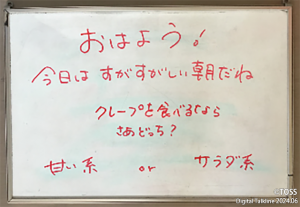 おはよう！
今日は すがすがしい朝だね
クレープを食べるなら
さぁどっち？
甘い系 or サラダ系
©TOSS
Digital Talkline 2024.06